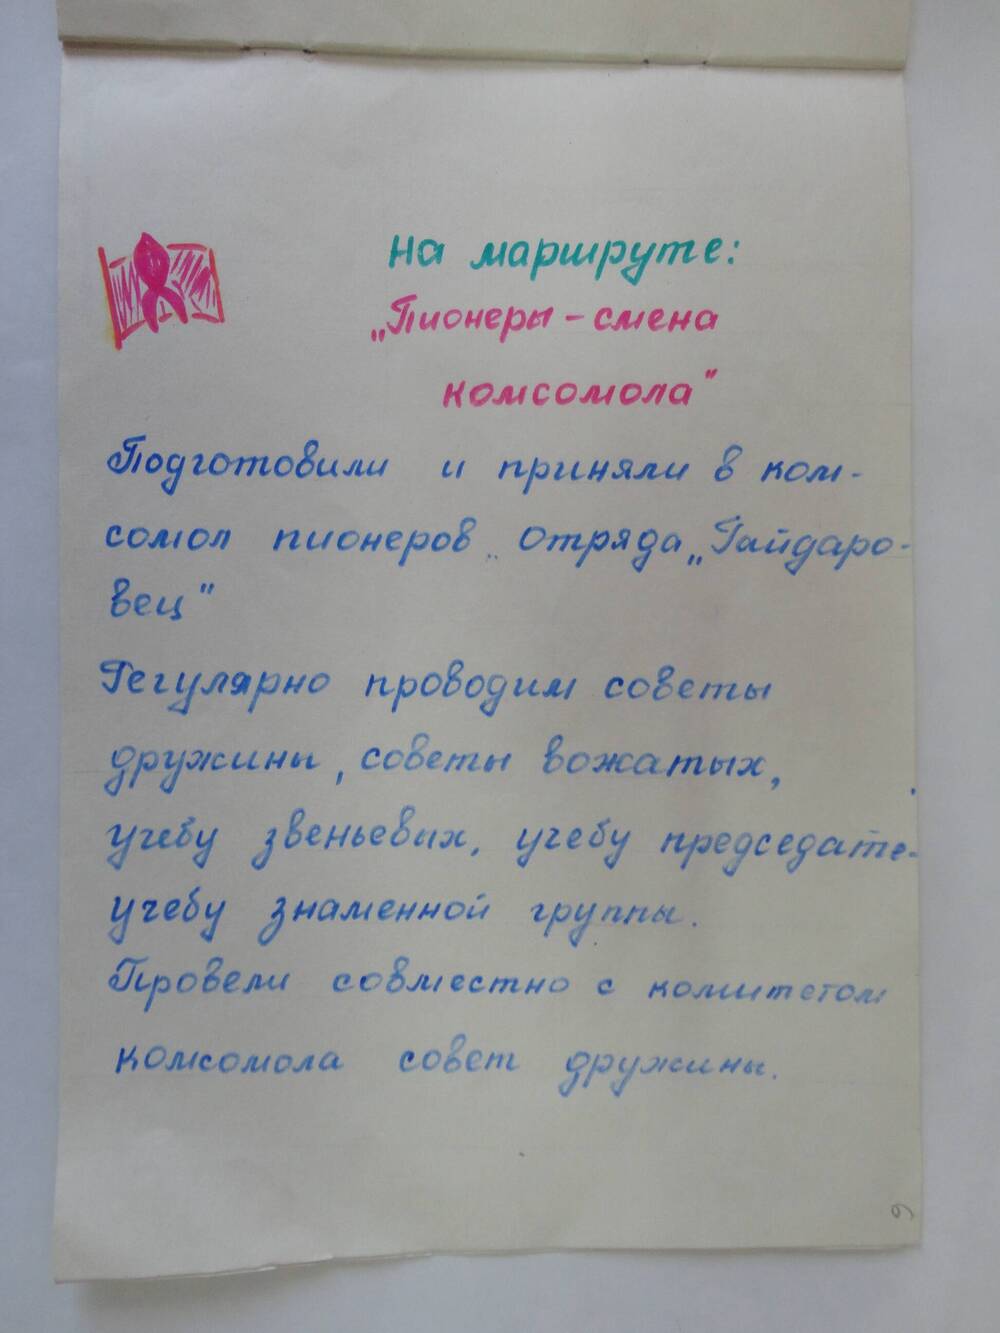 На маршруте:
„Пионеры - смена
комсомола"
Подготовили и приняли в ком-
сомол пионеров отряда „Гайдаро-
вец"
Регулярно проводим советы
дружины, советы вожатых,
учебу звеньевых, учебу председате-
учебу знаменной группы.
Провели совместно с комитетом
комсомола совет дружины.
9